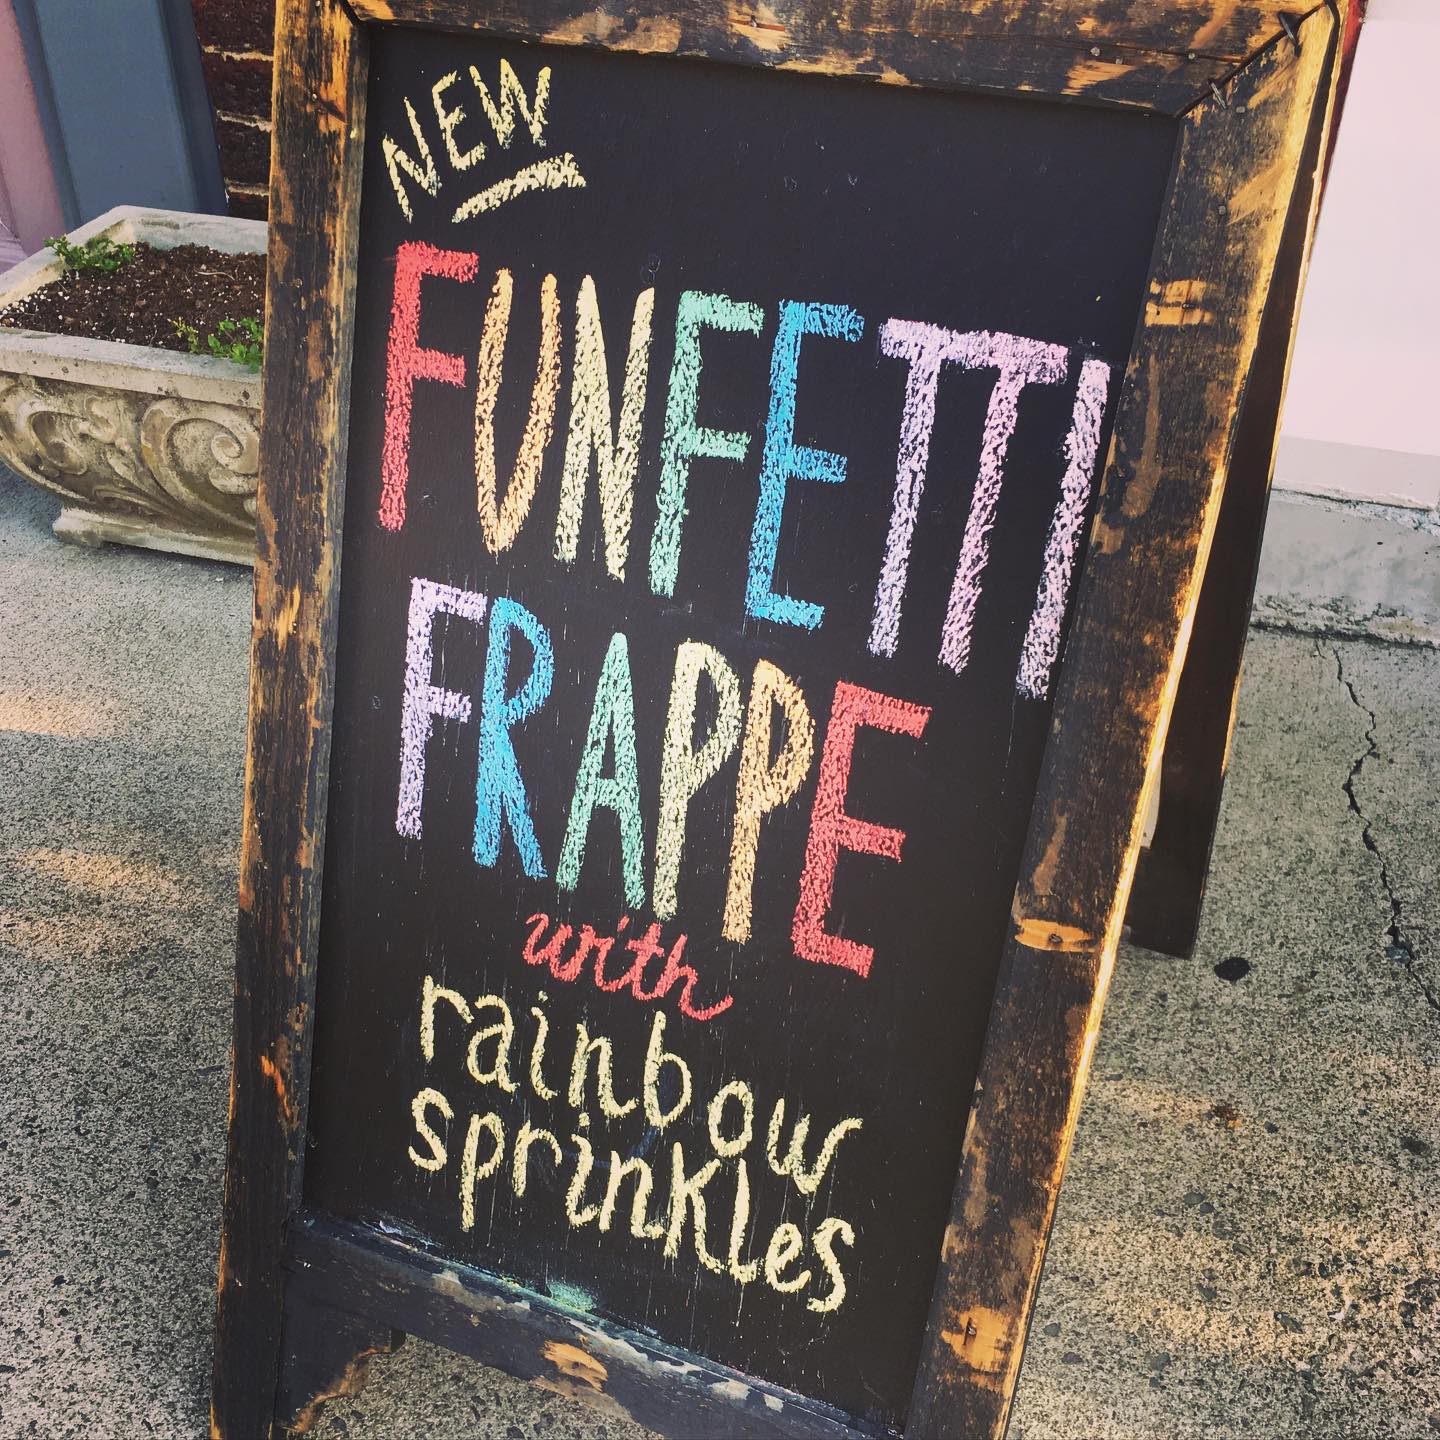 NEW
FUNFETTI
FRAPPE
with
rainbow
sprinkles